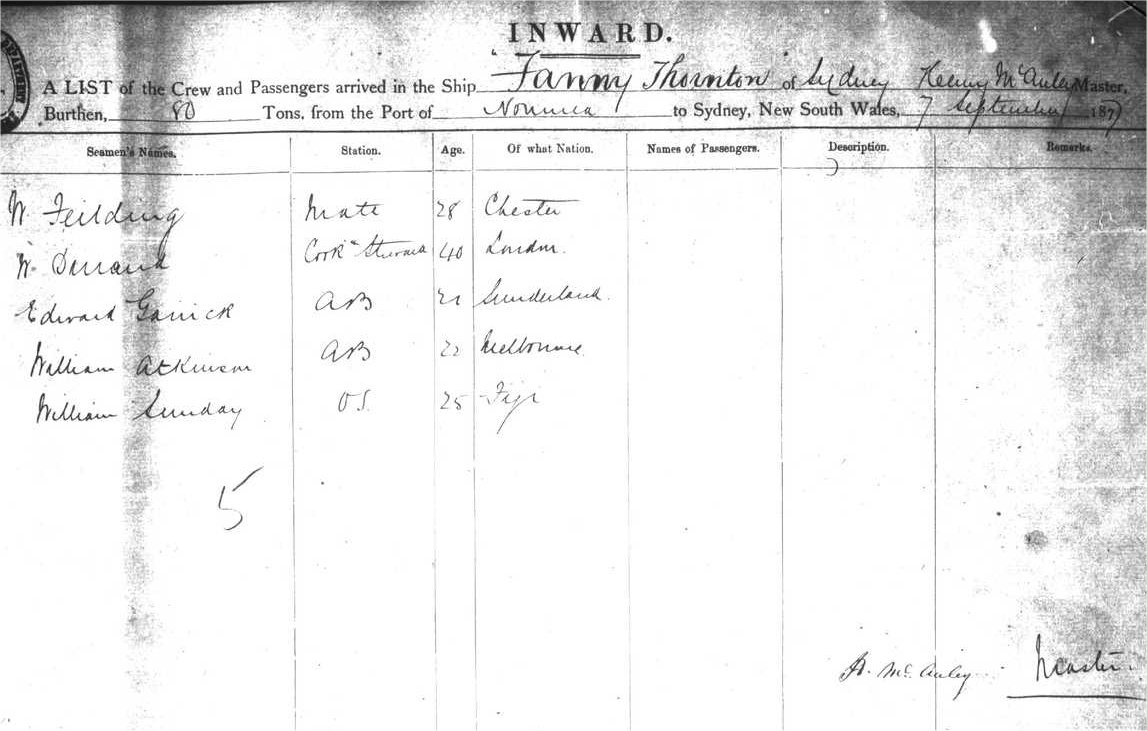 INWARD.
A LIST of the Crew and Passengers arrived in the Ship "Fanny Thornton of Sydney Henry McAuley Master,
Burthen, 80 Tons, from the Port of Noumea to Sydney, New South Wales, 7 September 1877
Seamen's Names. Station. Age. Of what Nation. Names of Passengers. Description. Remarks.
W. Feilding Mate 28 Chester
W. Cook & Steward 40 London.
Edward Garrick AB 21 Sunderland.
William Atkinson AB 22 Melbourne
William Sunday OS. 25 Fiji
5
H. McAuley Master.